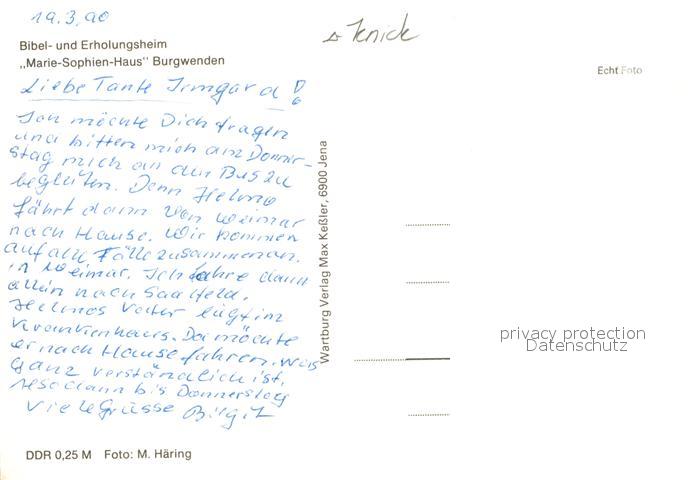 19.3.90
Bibel- und Erholungsheim
„Marie-Sophien-Haus" Burgwenden
Liebe Tante Irmgard!
Ich möchte Dich fragen
und bitten mich am Donner-
stag mich an den Bus zu
begleiten. Denn Helmo
fährt dann von Weimar
nach Hause. Wir kommen
auf alle Fälle zusammen an.
in Weimar. Ich fahre dann
allein nach Saalfeld.
Helmos Vater liegt im
Krankenhaus. Da möchte
er nach Hause fahren. was
ganz verständlich ist.
Also dann bis Donnerstag
Viele Grüsse Birgit
DDR 0,25 M Foto: M. Häring
Wartburg Verlag Max Keßler, 6900 Jena
Echt Foto
privacy protection
Datenschutz